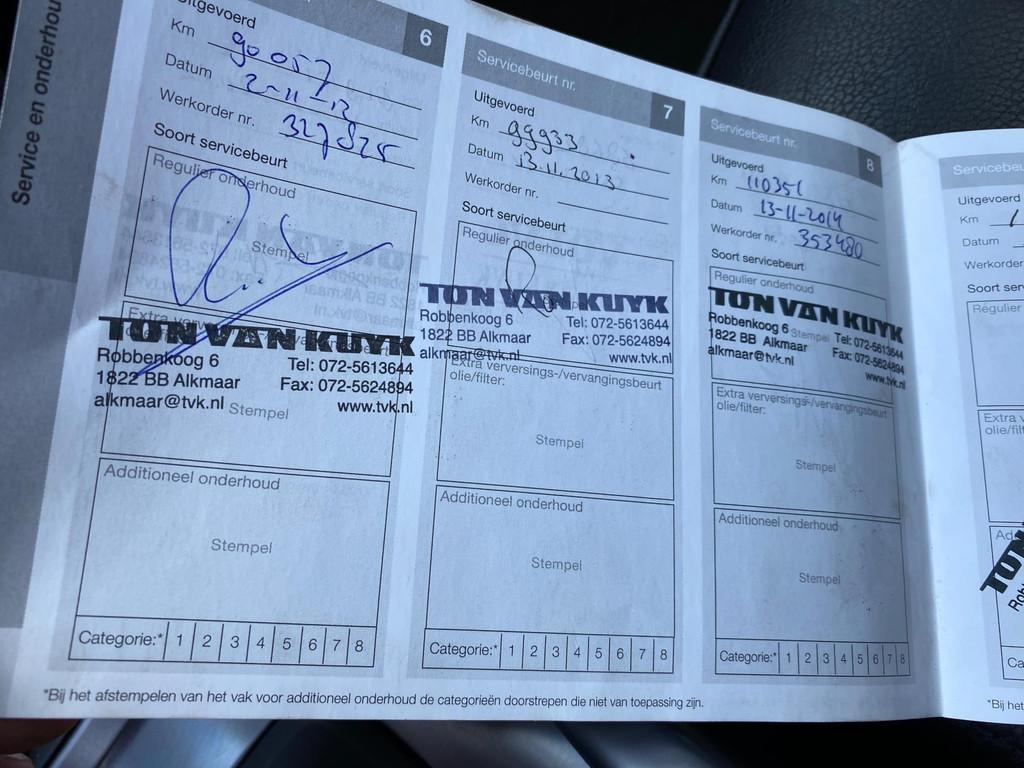 Service en onderhou
6
Uitgevoerd
Km 90057
Datum 2-11-12
Werkorder nr. 327825
Soort servicebeurt
Regulier onderhoud
Stempel
Extra
TON VAN KUYK
Robbenkoog 6 Tel: 072-5613644
1822 BB Alkmaar Fax: 072-5624894
alkmaar@tvk.nl www.tvk.nl
Stempel
Additioneel onderhoud
Stempel
Categorie:* 1 2 3 4 5 6 7 8
Servicebeurt nr. 7
Uitgevoerd
Km 99933
Datum 13.11.2013
Werkorder nr.
Soort servicebeurt
Regulier onderhoud
TON VAN KUYK
Robbenkoog 6 Tel: 072-5613644
1822 BB Alkmaar Fax: 072-5624894
alkmaar@tvk.nl www.tvk.nl
Extra verversings-/vervangingsbeurt
olie/filter:
Stempel
Additioneel onderhoud
Stempel
Categorie:* 1 2 3 4 5 6 7 8
Servicebeurt nr. 8
Uitgevoerd
Km 110351
Datum 13-11-2014
Werkorder nr. 353480
Soort servicebeurt
Regulier onderhoud
TON VAN KUYK
Robbenkoog 6 Stempel Tel: 072-5613644
1822 BB Alkmaar Fax: 072-5624894
alkmaar@tvk.nl www.tvk.nl
Extra verversings-/vervangingsbeurt
olie/filter:
Stempel
Additioneel onderhoud
Stempel
Categorie:* 1 2 3 4 5 6 7 8
*Bij het afstempelen van het vak voor additioneel onderhoud de categorieën doorstrepen die niet van toepassing zijn.
Servicebeu
Uitgevoerd
Km
Datum
Werkorder
Soort ser
Regulier
Extra v
olie/filt
Ad
TON
Rob
Ca
*Bij het